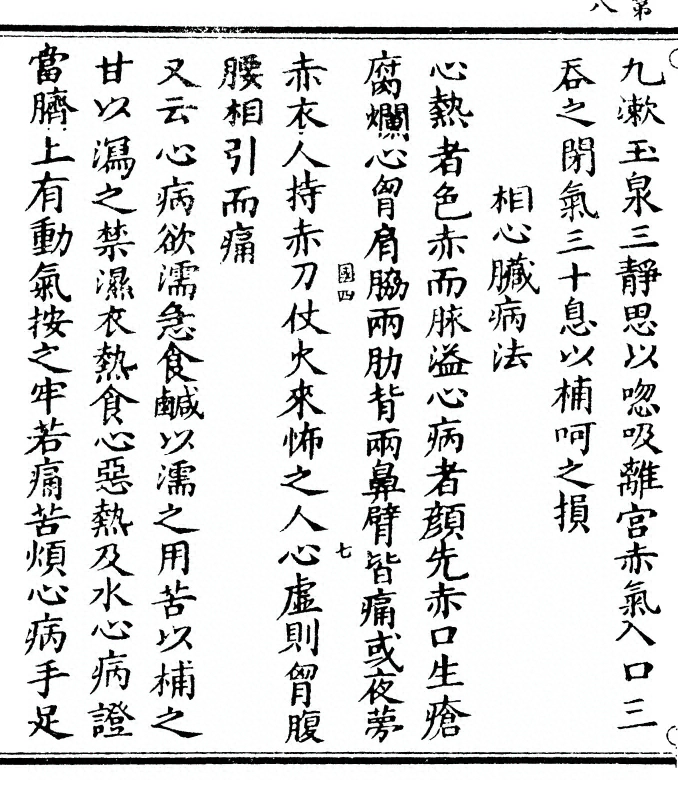 第
八
九漱玉泉三靜思以唿吸離宮赤氣入口三
吞之閉氣三十息以補呵之損
相心臟病法
心熱者色赤而脉溢心病者顏先赤口生瘡
腐爛心胷肩脇兩肋背兩鼻臂皆痛或夜夢
國四
七
赤衣人持赤刀仗火來怖之人心虛則胷腹
腰相引而痛
又云心病欲濡急食鹹以濡之用苦以補之
甘以瀉之禁濕衣熱食心惡熱及水心病證
當臍上有動氣按之牢若痛苦煩心病手足